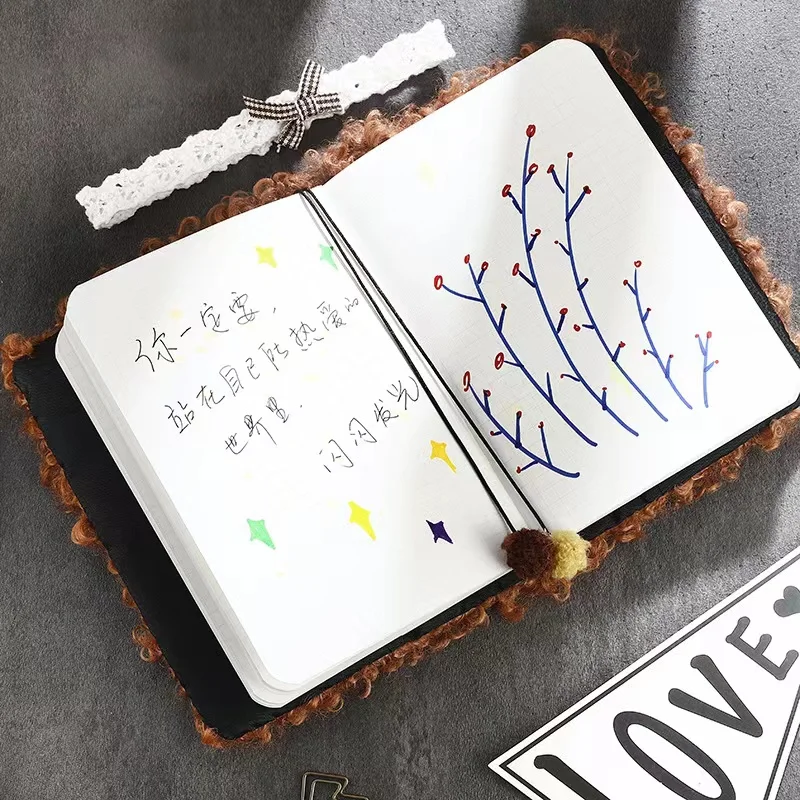 你一定要,
站在自己所热爱的
世界里.
闪闪发光
LOVE